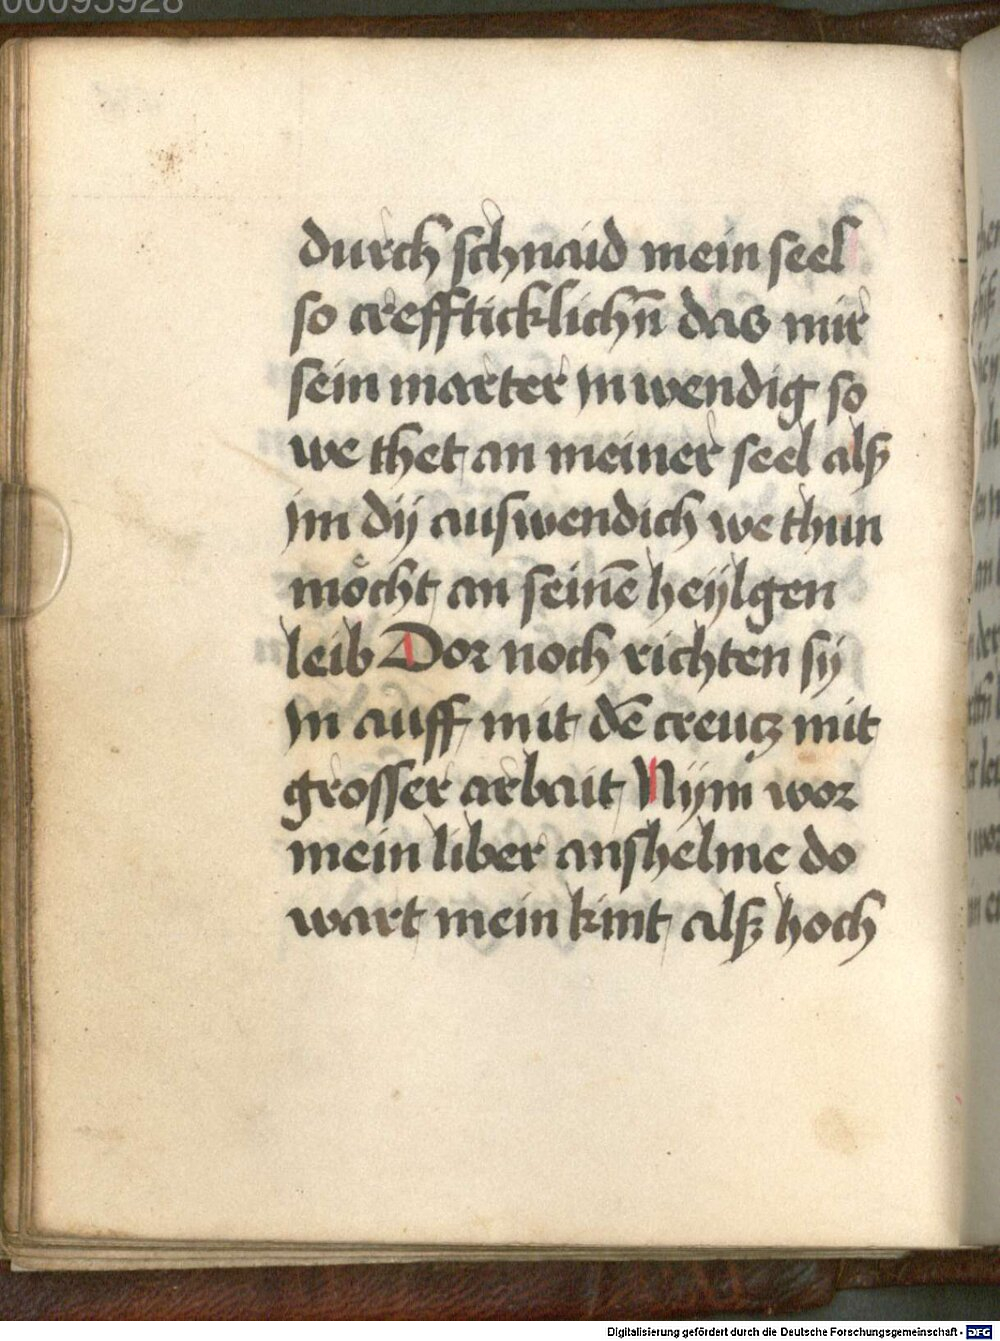 00095928
durch schnaid mein seel
so creffticklichn̄ das mir
sein marter Inwendig so
we thet an meiner seel alß
im dÿ auswendich we thun
möcht an seinē heÿlgen
leib Dor noch richten sÿ
In auff mit dē creucz mit
grosser arbait Nÿm wor
mein liber anshelme do
wart mein kint alß hoch
Digitalisierung gefördert durch die Deutsche Forschungsgemeinschaft - DFG